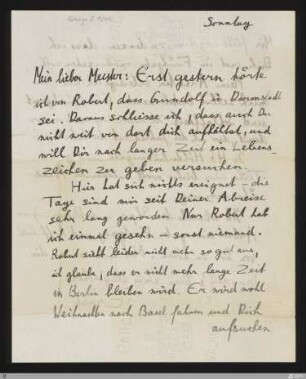 Sonntag
Mein lieber Meister: Erst gestern hörte
ich von Robert, dass Gundolf in Darmstadt
sei. Daraus schliesse ich, dass auch Du
nicht weit von dort dich aufhältst, und
will Dir nach langer Zeit ein Lebens-
zeichen zu geben versuchen.
Hier hat sich nichts ereignet – die
Tage sind mir seit Deiner Abreise
sehr lang geworden. Nur Robert hab
ich einmal gesehn – sonst niemand.
Robert sieht leider nicht mehr so gut aus,
ich glaube, dass er nicht mehr lange Zeit
in Berlin bleiben wird. Er wird wohl
Weihnachten nach Basel fahren und Dich
aufsuchen